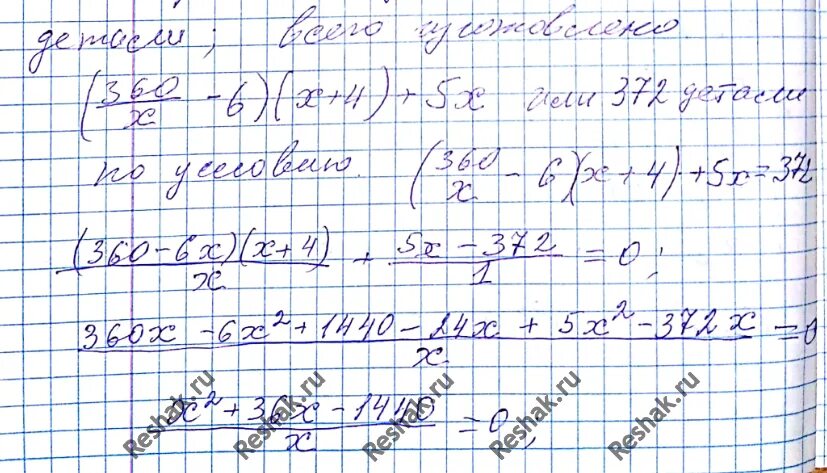 детали; всего изготовлено
(360/x - 6)(x+4) + 5x или 372 детали
по условию. (360/x - 6)(x+4)+5x=372
(360-6x)(x+4)/x + 5x-372/1 = 0;
360x - 6x² + 1440 - 24x + 5x² - 372x/x = 0
x² + 36x - 1440/x = 0;
Reshak.ru Reshak.ru Reshak.ru Reshak.ru Reshak.ru